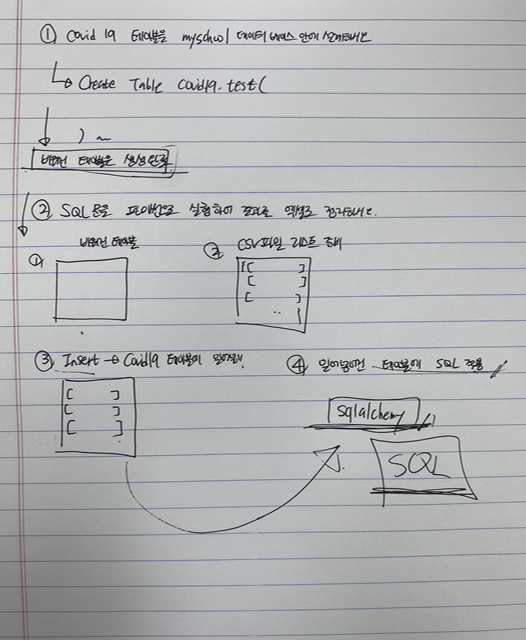 ① Covid 19 테이블을 myschool 데이터 베이스 안에 설계하세요
↳ Create Table Covid19.test(
) ~
비어있는 테이블은 생성완료
② SQL문을 파이썬으로 실행하여 결과를 엑셀로 전달하세요.
① 비어있는 테이블
② CSV파일 리스트 준비
[ ]
[ ]
[ ]
③ Insert → Covid19 테이블에 밀어넣기
[ ]
[ ]
[ ]
④ 밀어넣어진 테이블에 SQL 적용
sqlalchemy
SQL